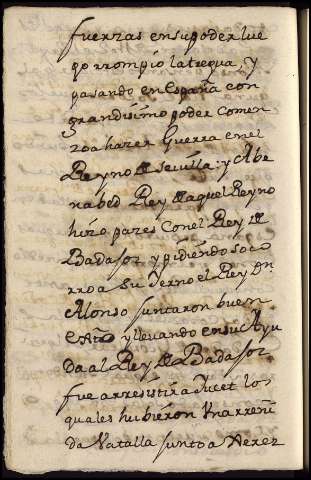 fuerzas ensupoder lue
go rrompio latregua, y
pasando en España con
grandisimo poder comen
zoa hazer Guerra enel
Reyno de Sevilla: y Abe
nabed Rey de aquel Reyno
hiço pazes conel Rey de
Badajoz y pidiendo soco
rro a su Yerno el Rey Dn
Alonso juntaron buen
exto y llevando ensu Ayu
da al Rey de Badajoz
fue arresistir a Jucet los
quales hubieron Vna rreñi
da Vatalla junto a Xerez